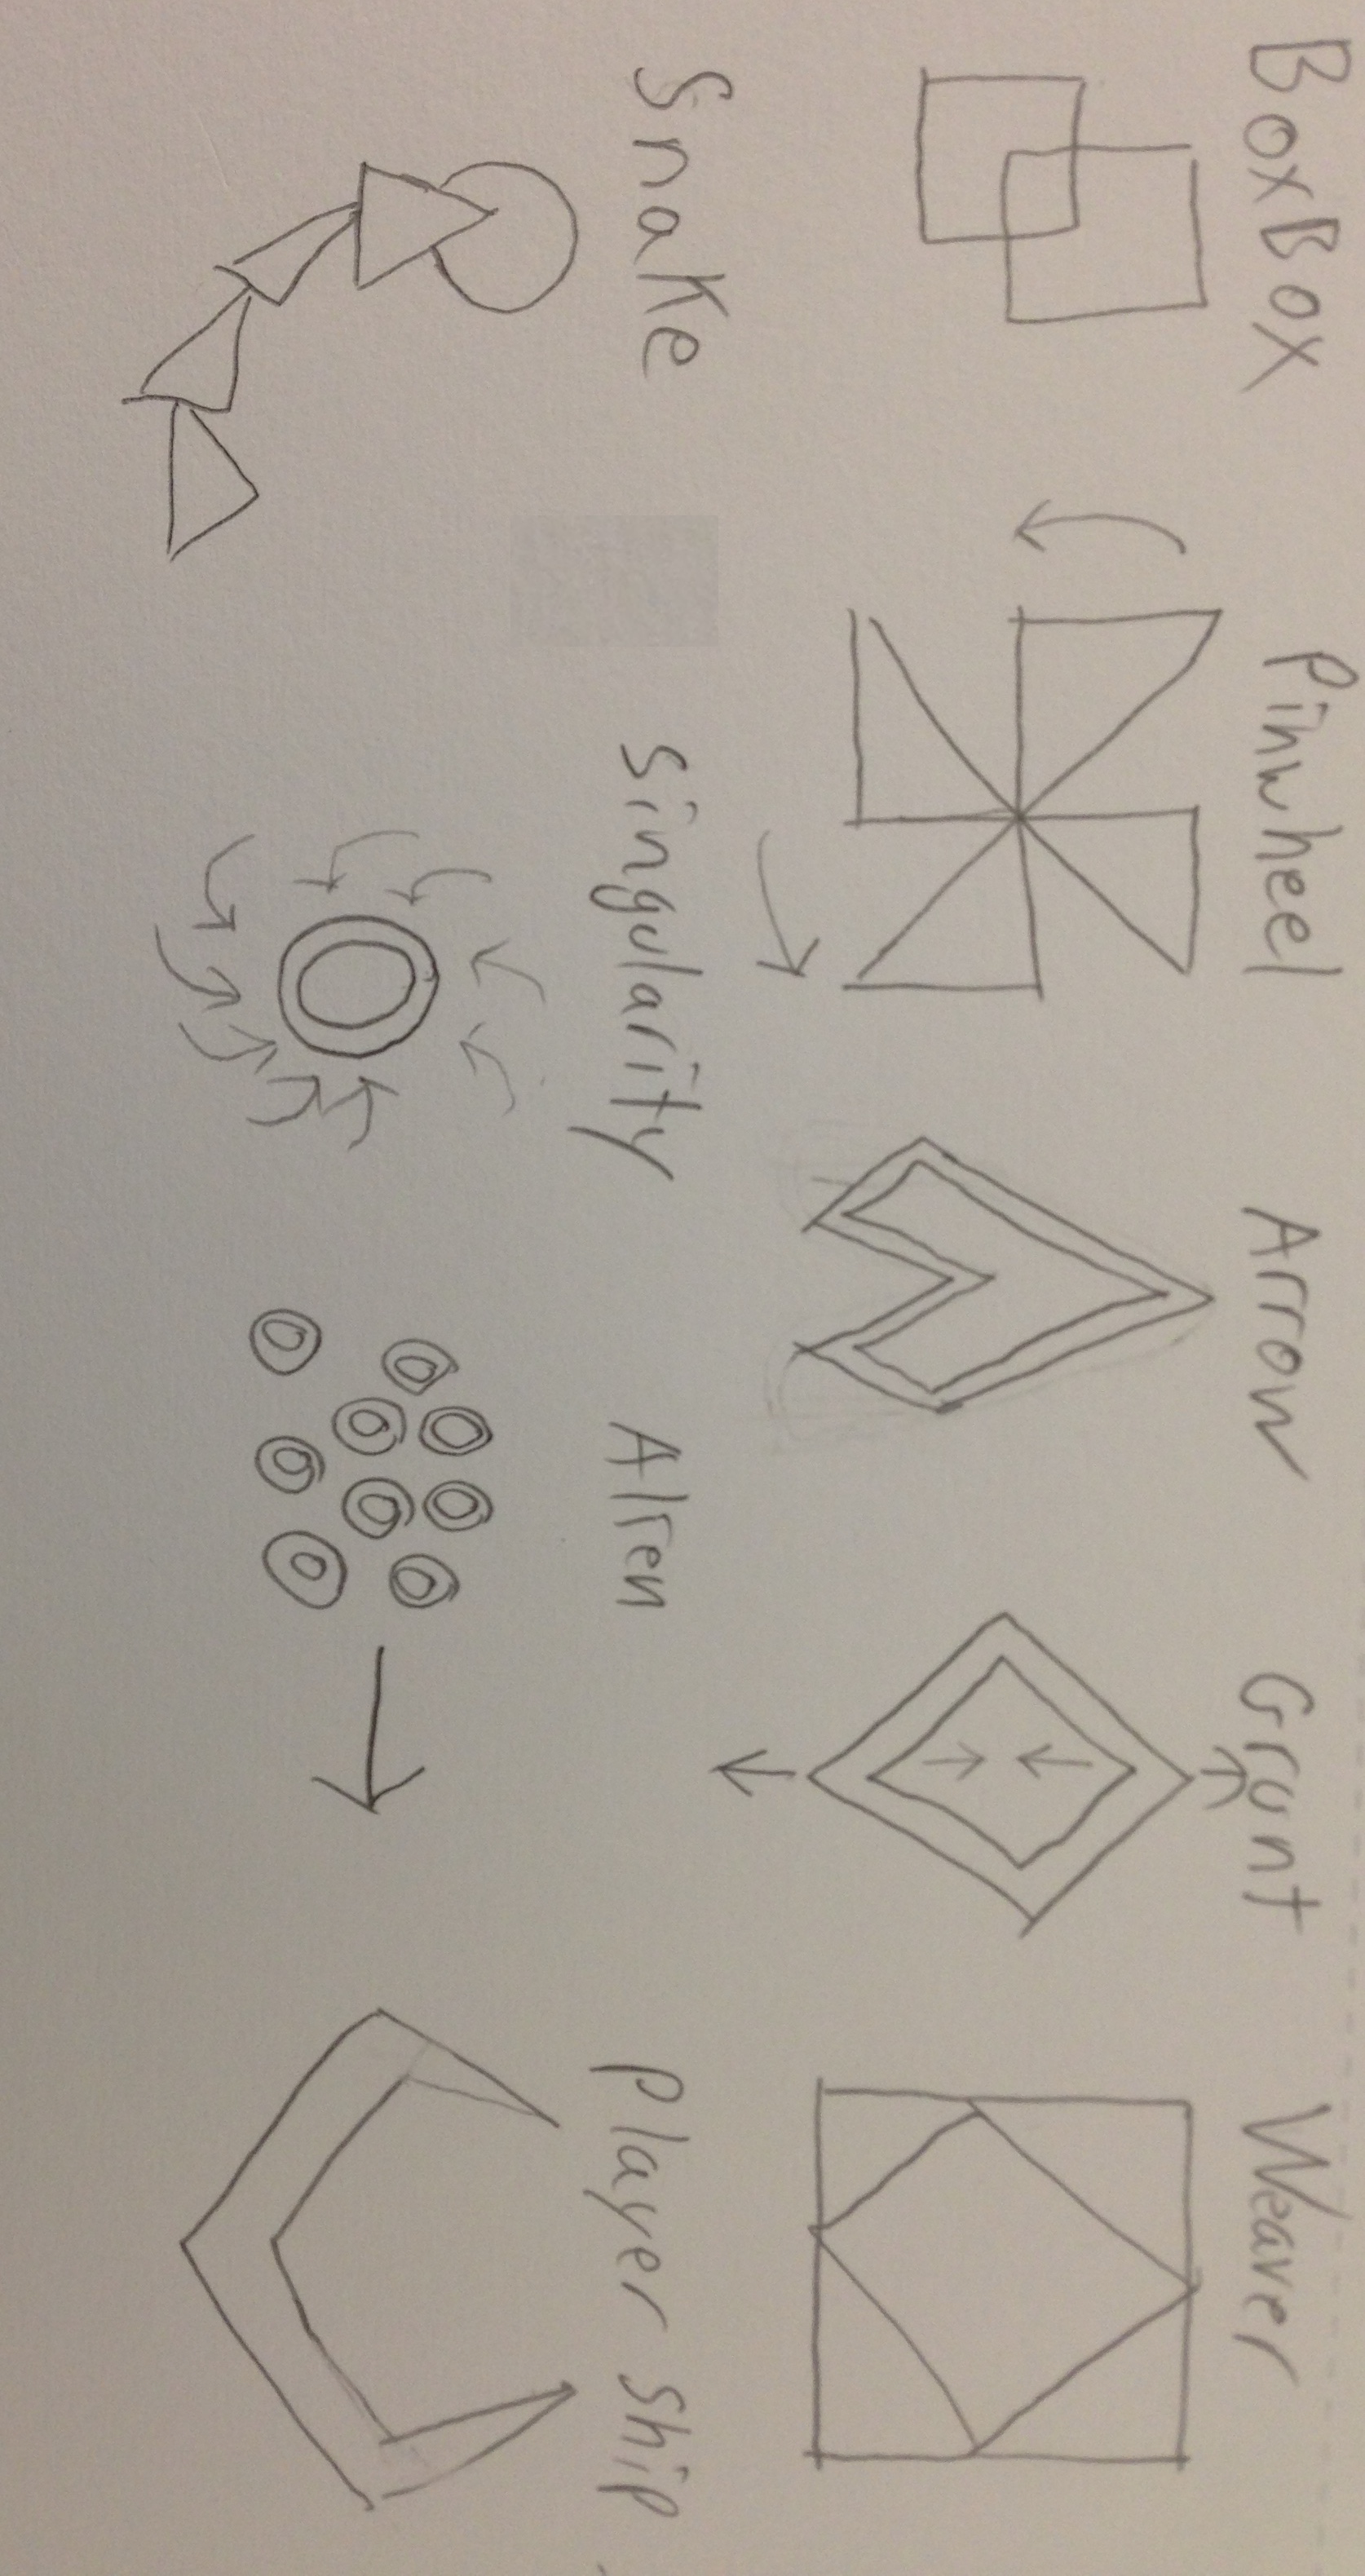 BoxBox Pinwheel Arrow Grunt Weaver
Snake Singularity Alien Player Ship